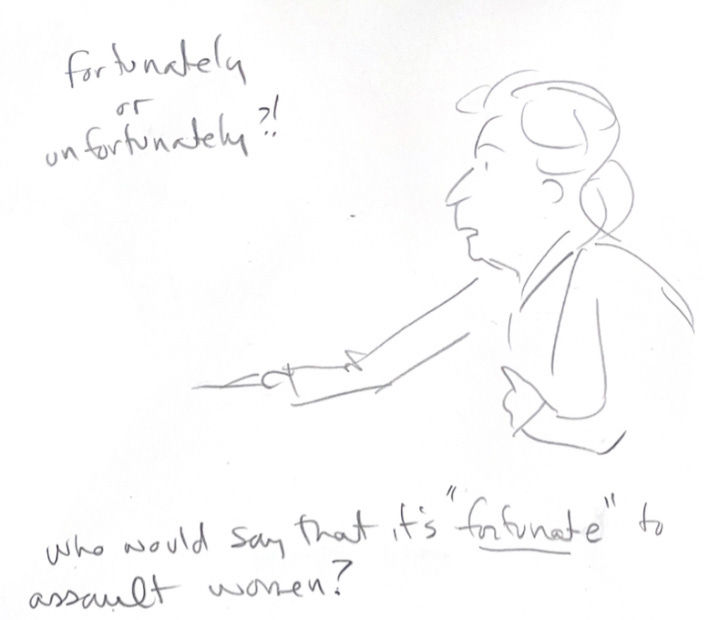 fortunately
or
unfortunately?!
who would say that it's "fortunate" to
assault women?